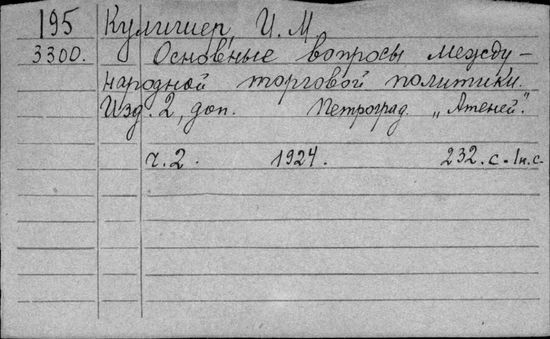 195 Кулишер, И. М
3300. Основные вопросы между-
народной торговой политики.
Изд. 2, доп. Петроград. „Атеней".
ч. 2. 1924. 232. с. 1н. с.